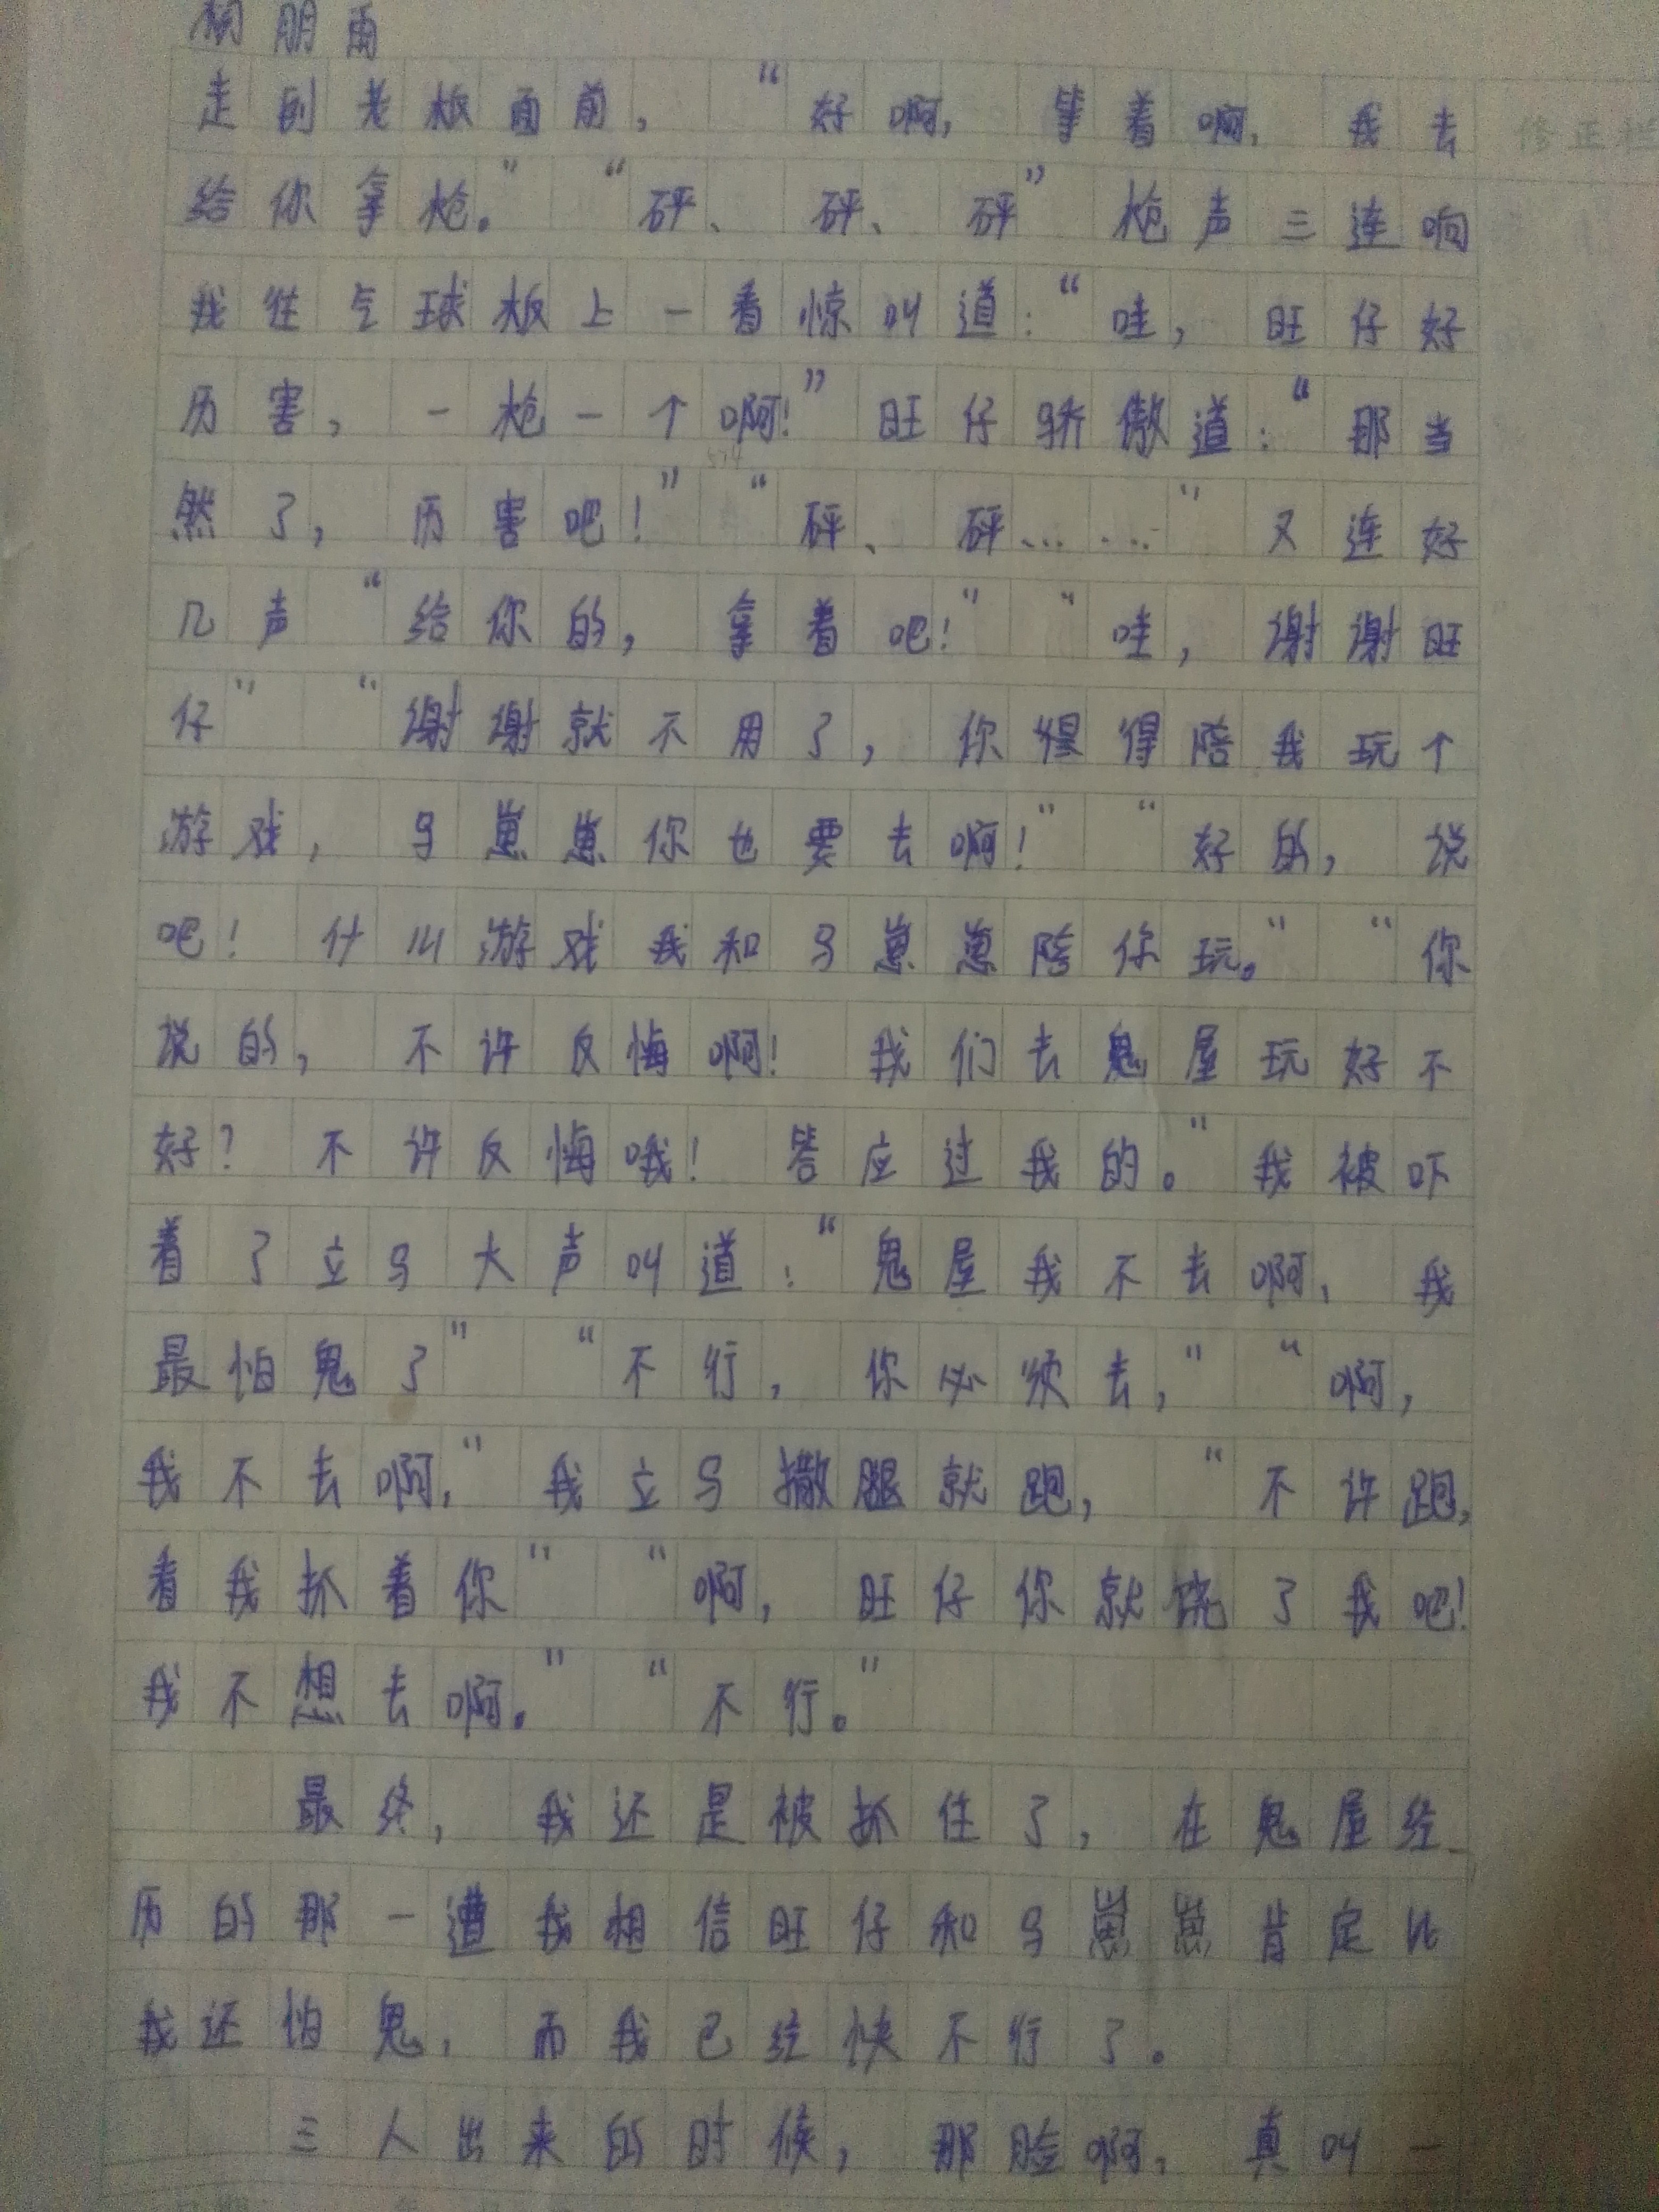 朋雨
走到老板面前，“好啊，等着啊，我去
修正栏
给你拿枪。”“砰、砰、砰”枪声三连响
我往气球板上一看惊叫道：“哇，旺仔好
历害，一枪一个啊！”旺仔骄傲道：“那当
然了，历害吧！”“砰、砰……”又连好
几声“给你的，拿着吧！”“哇，谢谢旺
仔”“谢谢就不用了，你得陪我玩个
游戏，马崽崽你也要去啊！”“好的，说
吧！什么游戏我和马崽崽陪你玩。”“你
说的，不许反悔啊！我们去鬼屋玩好不
好？不许反悔哦！答应过我的。”我被吓
着了立马大声叫道：“鬼屋我不去啊，我
最怕鬼了”“不行，你必须去，”“啊，
我不去啊，”我立马撒腿就跑，“不许跑，
看我抓着你”“啊，旺仔你就饶了我吧！
我不想去啊。”“不行。”
最终，我还是被抓住了，在鬼屋经
历的那一遭我相信旺仔和马崽崽肯定比
我还怕鬼，而我已经快不行了。
三人出来的时候，那脸啊，真叫一